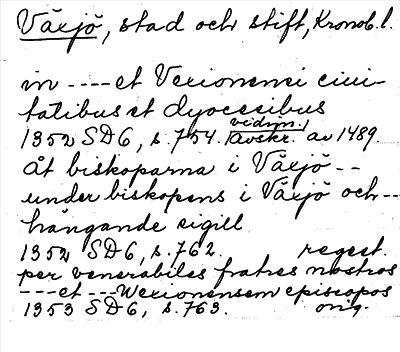 Växjö, stad och stift, Kronob. l.
in ---- et Vexionensi civi-
tatibus et dyocesibus
vidim.
1352 SD6, s. 754. Avskr. av 1489.
åt biskoparna i Växjö --
under biskopens i Växjö och --
hängande sigill
1352 SD6, s. 762. regest.
per venerabiles fratres nostros
--- et --- Wexionensem episcopos
1353 SD6, s. 763. orig.